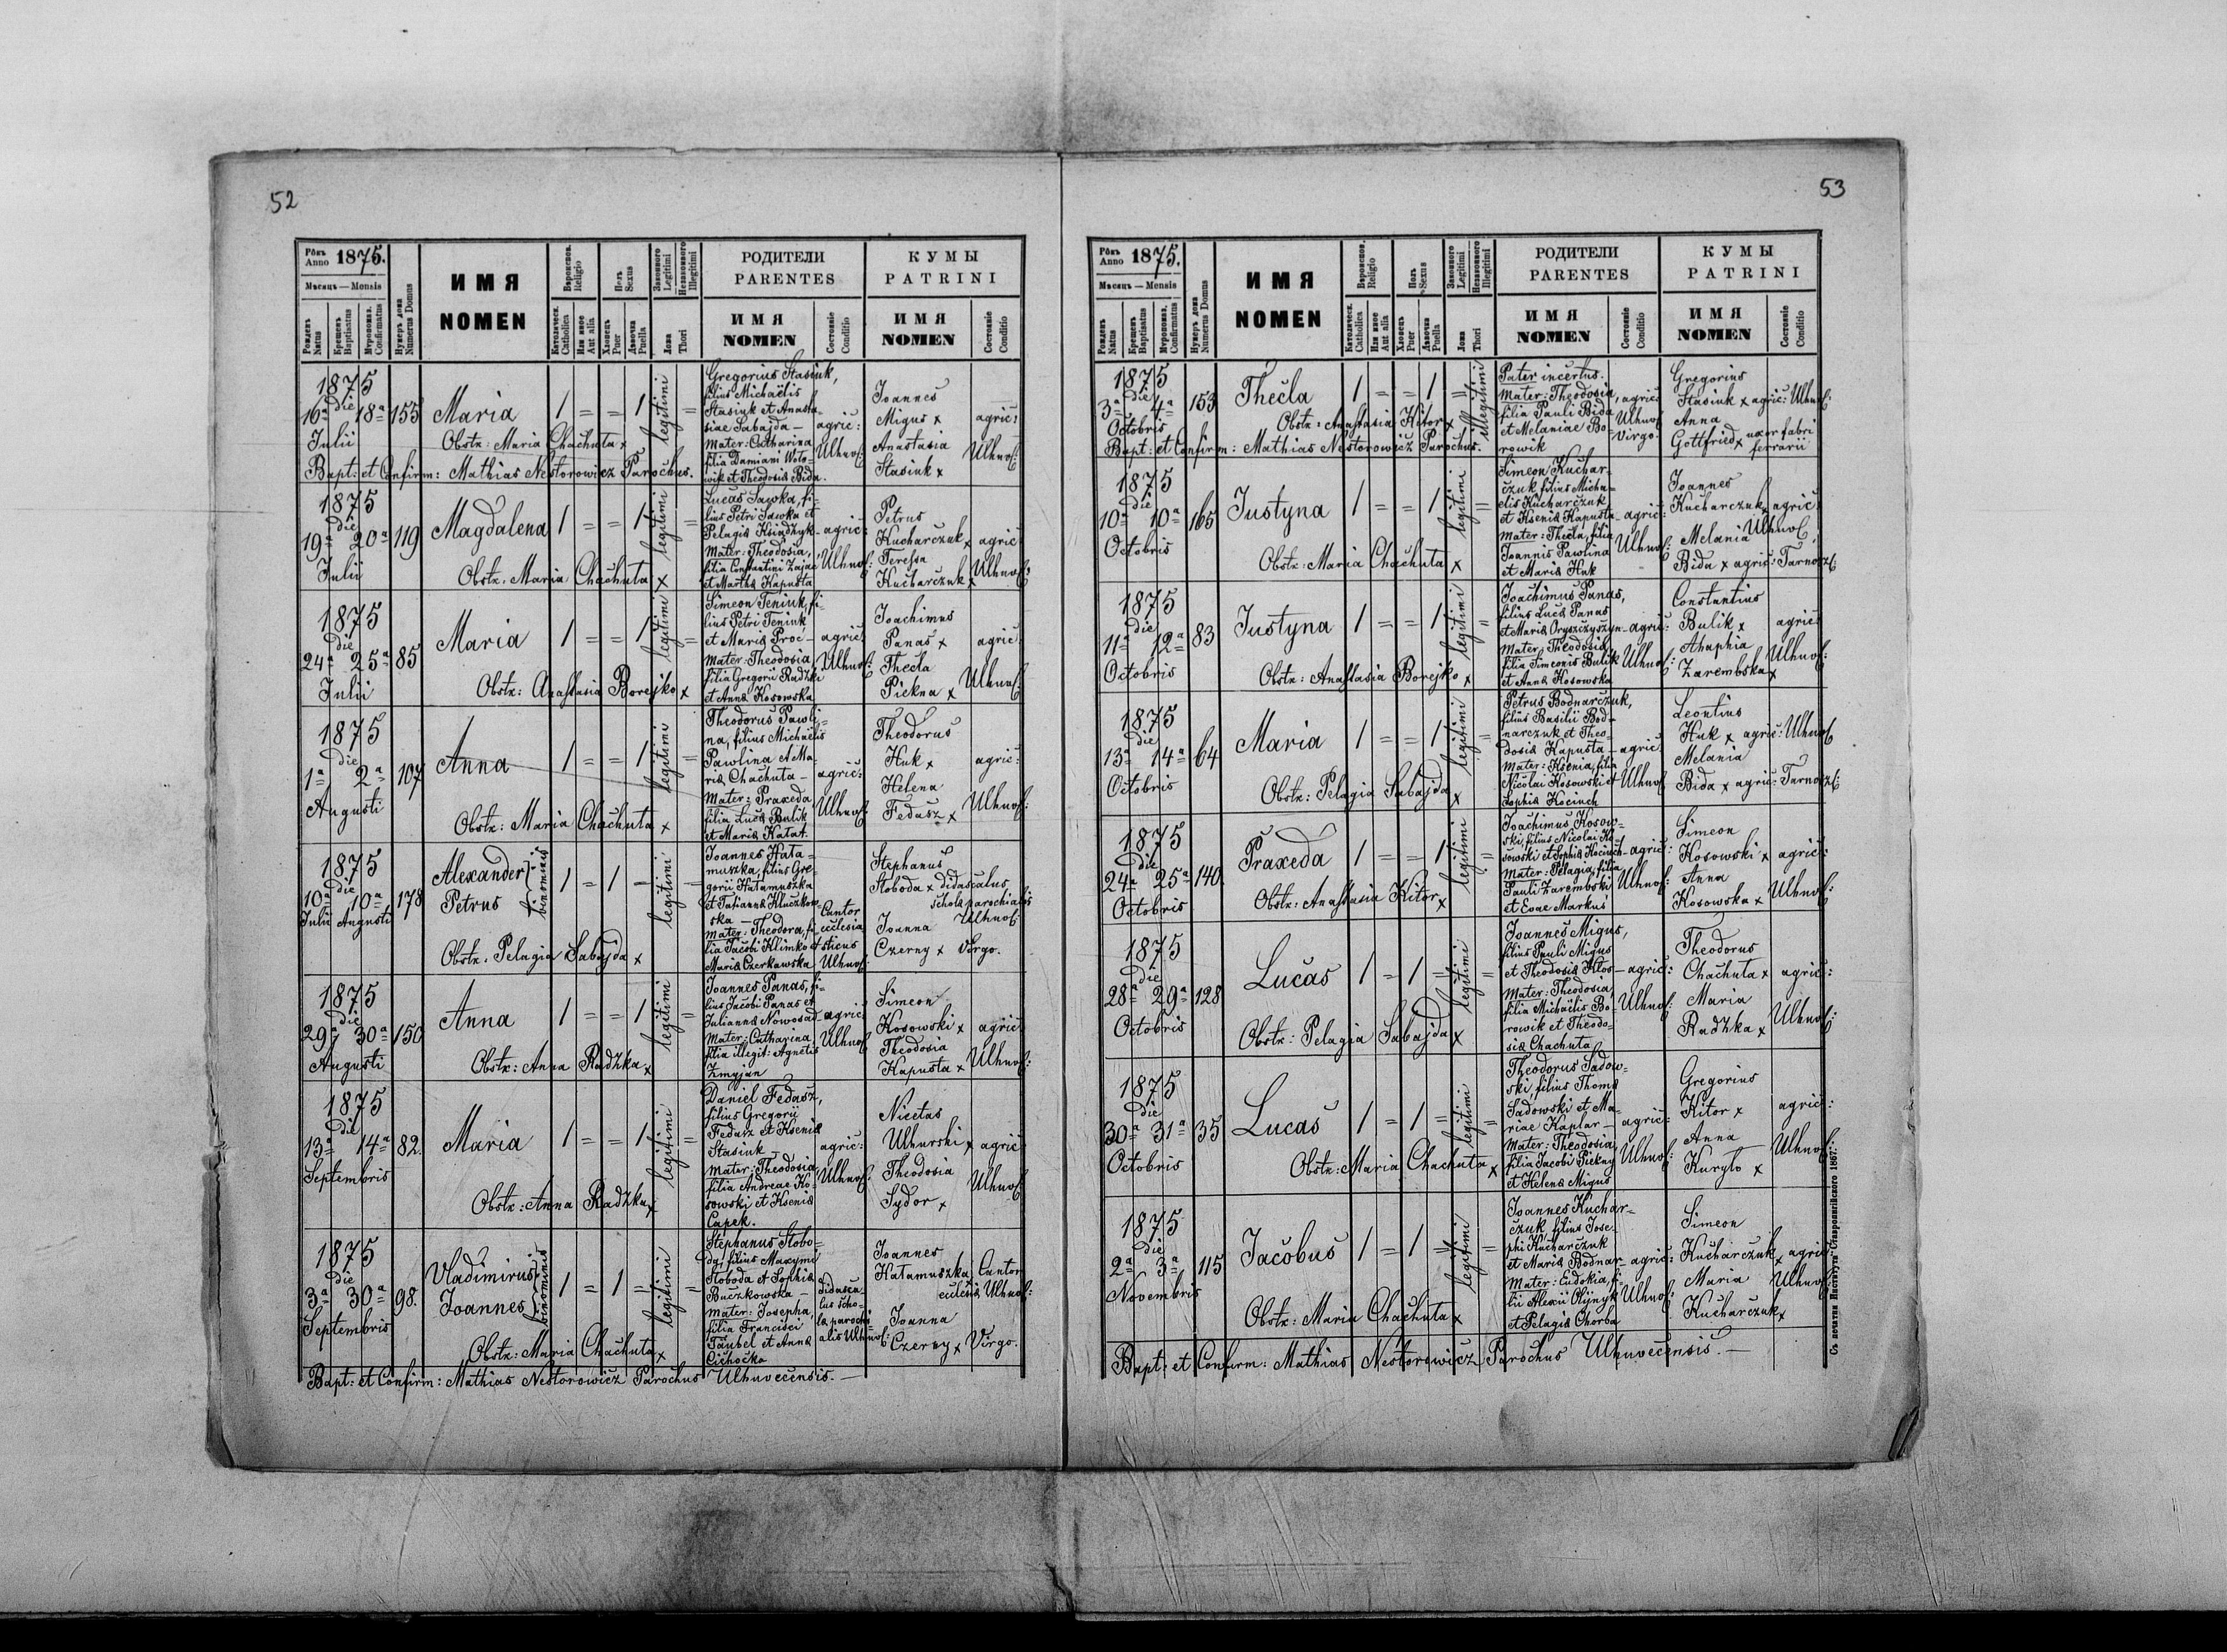 52
Рôкъ Anno 1875.
Мѣсяцъ — Mensis
Рожденъ Natus
Крещенъ Baptisatus
Мvропомаз. Confirmatus
Нумеръ дома Numerus Domus
ИМЯ
NOMEN
Religio
Католическ. Catholica
Или иное Aut alia
Полъ Sexus
Хлопецъ Puer
Дѣвочка Puella
Законного Legitimi
Незаконного Illegitimi
Ложа Thori
РОДИТЕЛИ
PARENTES
ИМЯ
NOMEN
Состояніе Conditio
КУМЫ
PATRINI
ИМЯ
NOMEN
Состояніе Conditio
1875
die
16ª 18ª 155
Julii
Maria
1 = = 1 legitimi =
Obstx: Maria Chachuta x
Gregorius Stasiuk,
filius Michaëlis
Stasiuk et Anasta-
siae Sabajda —
Mater: Catharina
filia Damiani Woto-
wik et Theodosia Bida.
agric:
Ulhuv:
Joannes
Migus x
Anastasia
Stasiuk x
agric:
Ulhuv:
Bapt: et Confirm: Mathias Nestorowicz Parochus.
1875
die
19ª 20ª 119
Julii
Magdalena
1 = = 1 legitimi =
Obstx: Maria Chachuta x
Lucas Sawka, fi-
lius Petri Sawka et
Pelagia Ksiądzyk
Mater: Theodosia,
filia Constantini Zając
et Martha Kapusta
agric:
Ulhuv:
Petrus
Kucharczuk x
Teressa
Kucharczuk x
agric:
Ulhuv:
1875
die
24ª 25ª 85
Julii
Maria
1 = = 1 legitimi =
Obstx: Anastasia Borejko x
Simeon Teniuk, fi-
lius Petri Teniuk
et Maria Proc —
Mater: Theodosia
filia Gregorii Radzki
et Anna Kosowska
agric:
Ulhuv:
Joachimus
Panas x
Thecla
Piekna x
agric:
Ulhuv:
1875
die
1ª 2ª 107
Augusti
Anna
1 = = 1 legitimi =
Obstx: Maria Chachuta x
Theodorus Pawli-
na, filius Michaëlis
Pawlina et Ma-
ria Chachuta —
Mater: Praxeda
filia Luca Bulik
et Maria Katat.
agric:
Ulhuv:
Theodorus
Huk x
Helena
Fedusz x
agric:
Ulhuv:
1875
die
10ª 10ª 178
Julii Augusti
Alexander
Petrus
binominis
1 = 1 = legitimi =
Obstx: Pelagia Sabajda x
Joannes Hata-
muszka, filius Gre-
gorii Hatamuszka
et Tatianna Kluczkow-
ska —
Mater: Theodora, fi-
lia Jacobi Klimko et
Maria Czerkawska
Cantor
ecclesia-
sticus
Ulhuv:
Stephanus
Stoboda x didascalus
schola parochialis
Ulhuv:
Joanna
Czerny x Virgo.
1875
die
29ª 30ª 150
Augusti
Anna
1 = = 1 legitimi =
Obstx: Anna Radzka x
Joannes Panas, fi-
lius Jacobi Panas et
Julianna Nowosad
Mater: Catharina
filia illegit: Agnetis
Zmyjan
agric:
Ulhuv:
Simeon
Kosowski x
Theodosia
Kapusta x
agric:
Ulhuv:
1875
die
13ª 14ª 82.
Septembris
Maria
1 = = 1 legitimi =
Obstx: Anna Radzka x
Daniel Fedasz,
filius Gregorii
Fedasz et Ksenia
Stasiuk —
Mater: Theodosia,
filia Andreae Ko-
sowski et Ksenia
Capek.
agric:
Ulhuv:
Nicetas
Ulhurski x
Theodosia
Sydor x
agric:
Ulhuv:
1875
die
3ª 30ª 98.
Septembris
Vladimirus
Joannes
binominis
1 = 1 = legitimi =
Obstx: Maria Chachuta x
Stephanus Stobo-
da, filius Maxymi
Stoboda et Sophia
Buczkowska —
Mater: Josepha,
filia Francisci
Taubel et Anna
Cichocka
didasca-
lus scho-
la parochi-
alis Ulhuv:
Joannes
Hatamuszka x Cantor
ecclesia Ulhuv:
Joanna
Czerny x Virgo.
Bapt: et Confirm: Mathias Nestorowicz Parochus Ulhuvecensis. —
53
Рôкъ Anno 1875.
Мѣсяцъ — Mensis
Рожденъ Natus
Крещенъ Baptisatus
Мvропомаз. Confirmatus
Нумеръ дома Numerus Domus
ИМЯ
NOMEN
Religio
Католическ. Catholica
Или иное Aut alia
Полъ Sexus
Хлопецъ Puer
Дѣвочка Puella
Законного Legitimi
Незаконного Illegitimi
Ложа Thori
РОДИТЕЛИ
PARENTES
ИМЯ
NOMEN
Состояніе Conditio
КУМЫ
PATRINI
ИМЯ
NOMEN
Состояніе Conditio
1875
die
3ª 4ª 153
Octobris
Thecla
1 = = 1 = illegitimi
Obstx: Anastasia Kitor x
Pater incertus.
Mater: Theodosia,
filia Pauli Bida
et Melaniae Bo-
rowik
agric:
Ulhuv:
Virgo.
Gregorius
Stasiuk x agric: Ulhuv:
Anna
Gottfried x uxor fabri
ferrarii
Bapt: et Confirm: Mathias Nestorowicz Parochus.
1875
die
10ª 10ª 165
Octobris
Justyna
1 = = 1 legitimi =
Obstx: Maria Chachuta x
Simeon Kuchar-
czuk filius Micha-
elis Kucharczuk
et Ksenia Kapusta
Mater: Thecla, filia
Joannis Pawlina
et Maria Huk
agric:
Ulhuv:
Joannes
Kucharczuk x agric:
Ulhuv:
Melania
Bida x agric: Tarnosz:
1875
die
11ª 12ª 83
Octobris
Justyna
1 = = 1 legitimi =
Obstx: Anastasia Borejko x
Joachimus Panas,
filius Luca Panas
et Maria Oryszczyszyn
Mater: Theodosia
filia Simeonis Bulik
et Anna Kosowska
agric:
Ulhuv:
Constantius
Bulik x
Ahaphia
Zarembska x
agric:
Ulhuv:
1875
die
13ª 14ª 64
Octobris
Maria
1 = = 1 legitimi =
Obstx: Pelagia Sabajda x
Petrus Bodnarczuk,
filius Basilii Bod-
narczuk et Theo-
dosia Kapusta
Mater: Ksenia, filia
Nicolai Kosowski et
Sophia Kociuch
agric:
Ulhuv:
Leontius
Huk x agric: Ulhuv:
Melania
Bida x agric: Tarnosz:
1875
die
24ª 25ª 140.
Octobris
Praxeda
1 = = 1 legitimi =
Obstx: Anastasia Kitor x
Joachimus Kosow-
ski, filius Nicolai Ko-
sowski et Sophia Kociuch
Mater: Pelagia, filia
Pauli Zarembski
et Evae Markus
agric:
Ulhuv:
Simeon
Kosowski x
Anna
Kosowska x
agric:
Ulhuv:
1875
die
28ª 29ª 128
Octobris
Lucas
1 = 1 = legitimi =
Obstx: Pelagia Sabajda x
Joannes Migus,
filius Pauli Migus
et Theodosia Kłos
Mater: Theodosia,
filia Michaëlis Bo-
rowik et Theodo-
sia Chachuta
agric:
Ulhuv:
Theodorus
Chachuta x
Maria
Radzka x
agric:
Ulhuv:
1875
die
30ª 31ª 35
Octobris
Lucas
1 = 1 = legitimi =
Obstx: Maria Chachuta x
Theodorus Sadow-
ski, filius Thoma
Sadowski et Ma-
riae Kaplar —
Mater: Theodosia,
filia Jacobi Piekny
et Helena Migus
agric:
Ulhuv:
Gregorius
Kitor x
Anna
Kuryto x
agric:
Ulhuv:
1875
die
2ª 3ª 115
Novembris
Jacobus
1 = 1 = legitimi =
Obstx: Maria Chachuta x
Joannes Kuchar-
czuk filius Jose-
phi Kucharczuk
et Maria Bodnar
Mater: Eudokia, fi-
lii Alexii Olijnyk
et Pelagia Chorba
agric:
Ulhuv:
Simeon
Kucharczuk x
Maria
Kucharczuk x
agric:
Ulhuv:
Bapt: et Confirm: Mathias Nestorowicz Parochus Ulhuvecensis. —
Съ печатни Института Ставропигійского 1867.